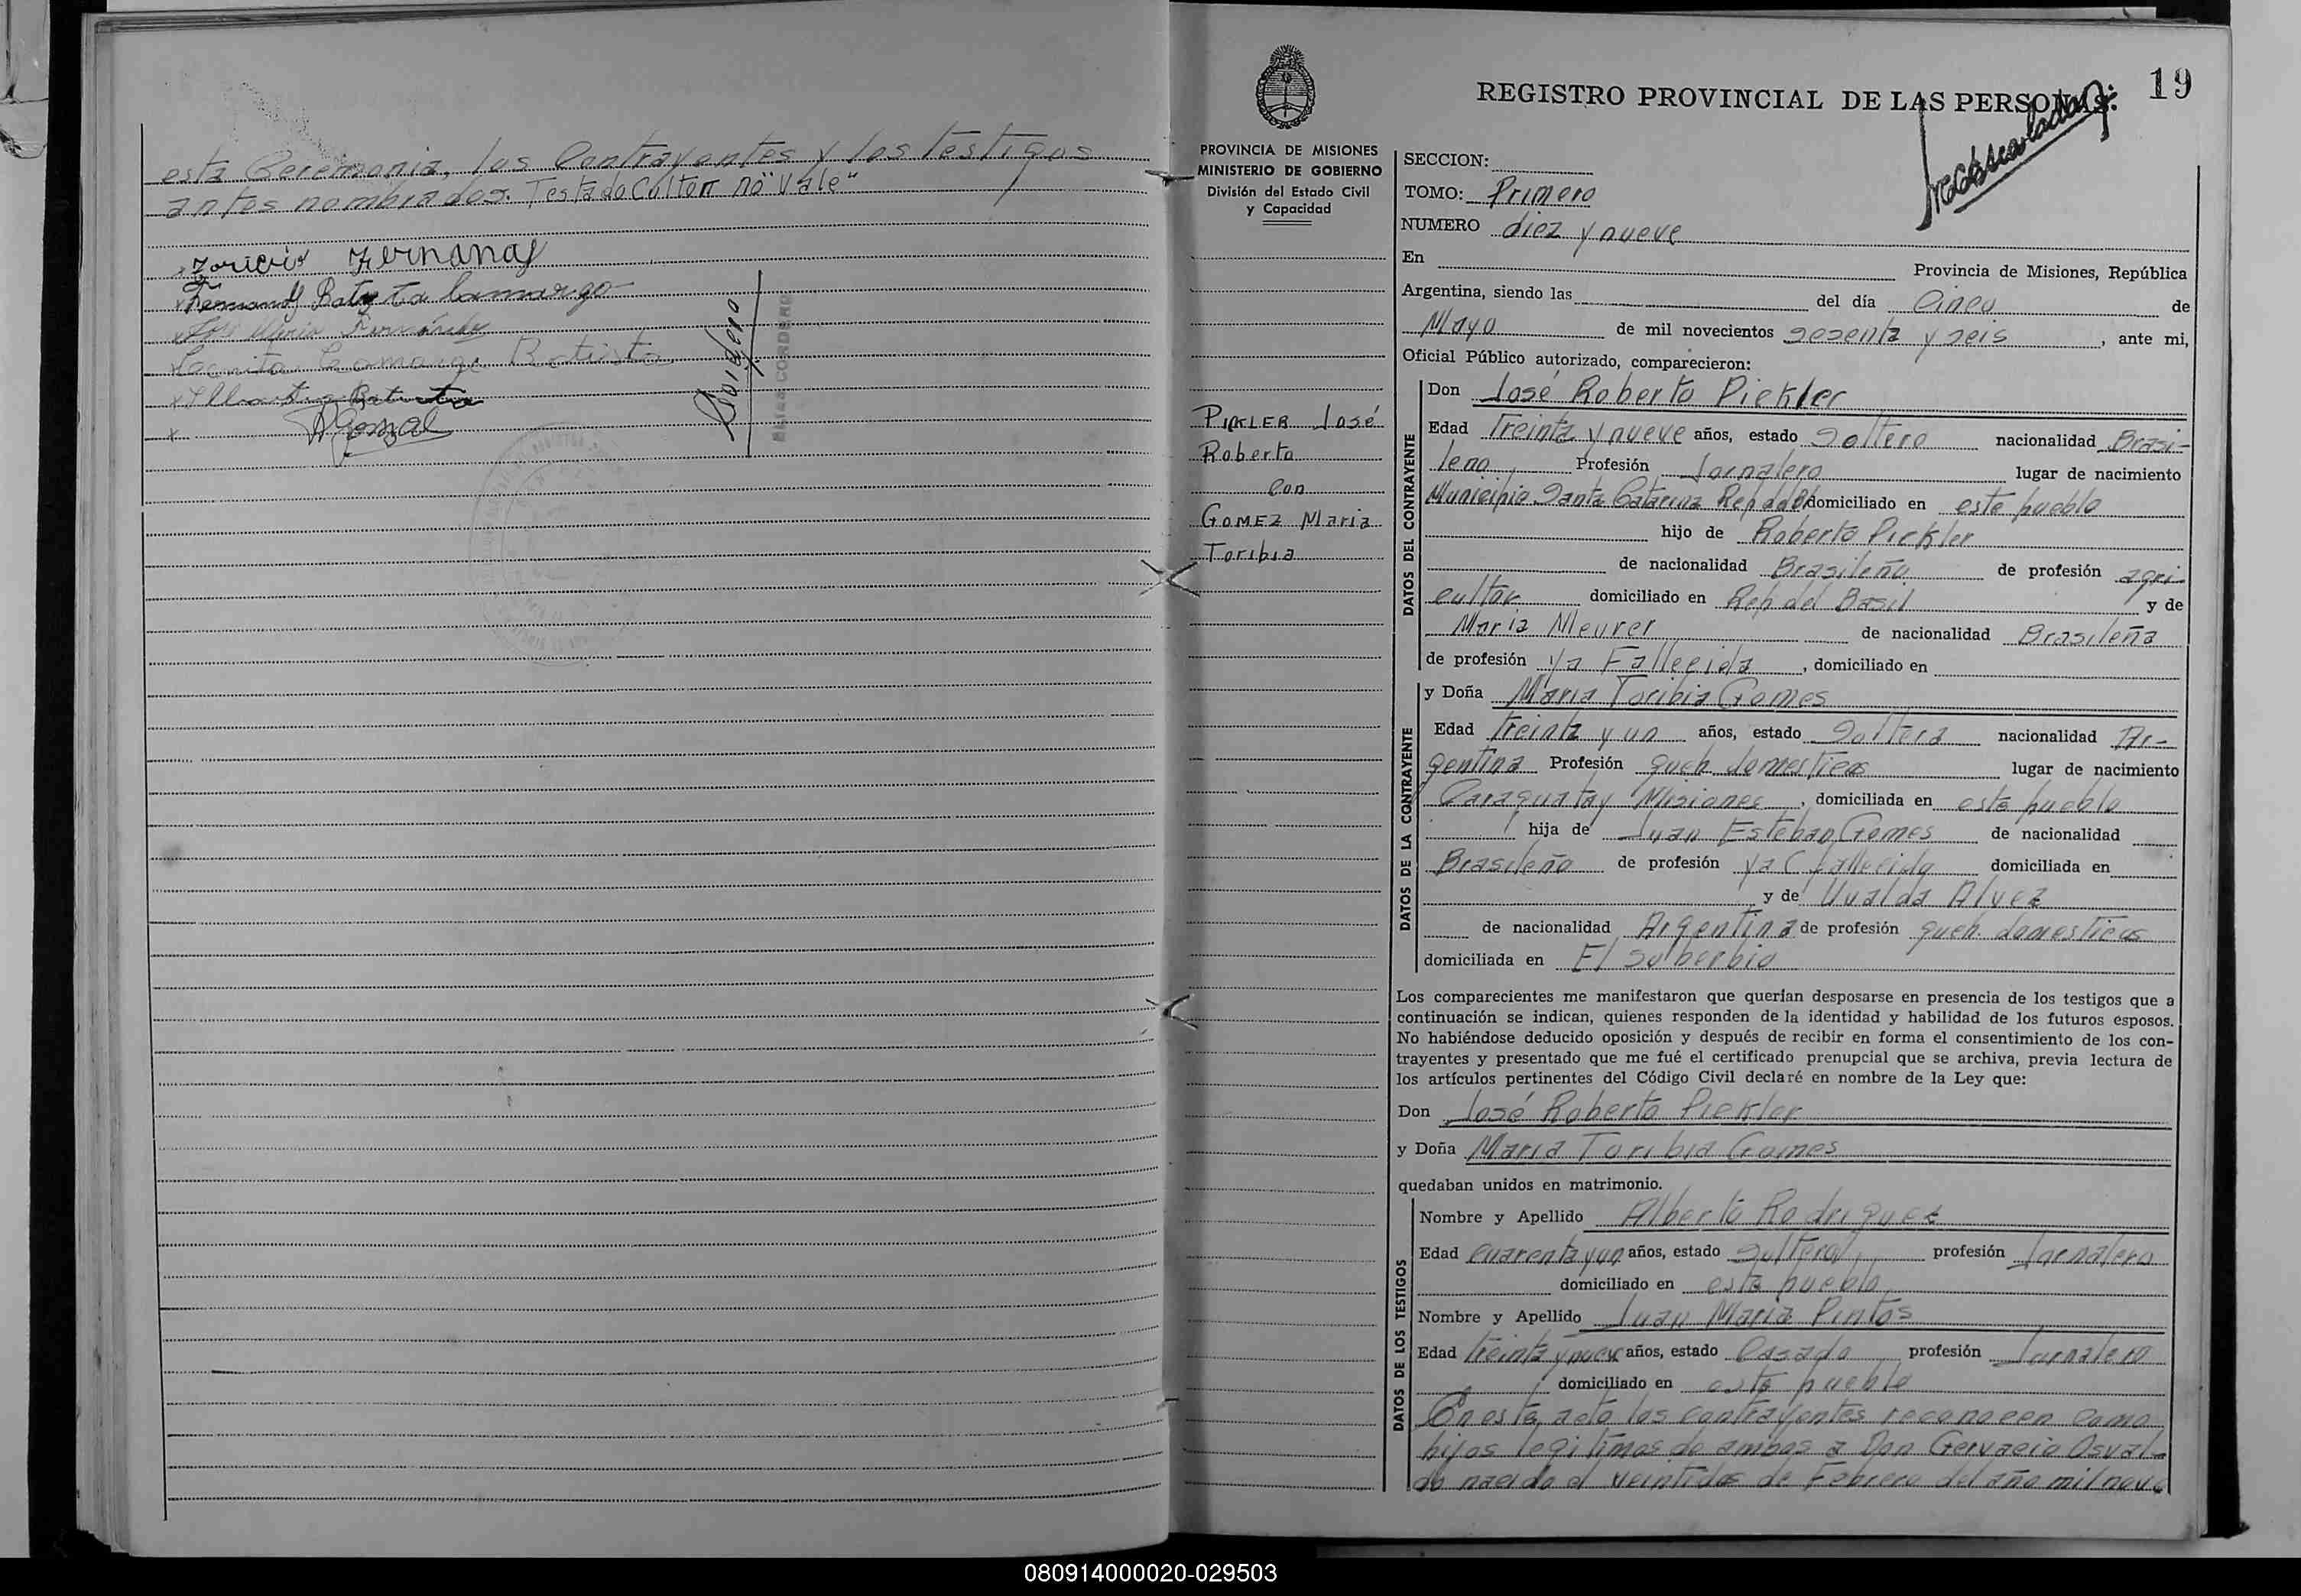 esta Ceremonia, los Contrayentes y los testigos
antes nombrados. Testado no "Vale"
Fernandez Batysta Camargo
José Maria Fernández
Camargo Batista
Batista
Cordero
CORDERO
19
REGISTRO PROVINCIAL DE LAS PERSONAS
PROVINCIA DE MISIONES
MINISTERIO DE GOBIERNO
División del Estado Civil
y Capacidad
PICKLER José
Roberto
con
GOMEZ Maria
Toribia
SECCION:
TOMO: Primero
NUMERO diez y nueve
En Provincia de Misiones, República
Argentina, siendo las del día Cinco de
Mayo de mil novecientos sesenta y seis, ante mi,
Oficial Público autorizado, comparecieron:
DATOS DEL CONTRAYENTE
Don José Roberto Pickler
Edad Treinta y nueve años, estado Soltero nacionalidad Brasi-
leno Profesión Jornalero lugar de nacimiento
Municipio Santa Catarina Rep del domiciliado en este pueblo
hijo de Roberto Pickler
de nacionalidad Brasileña de profesión agri-
cultor domiciliado en Rep del Basil y de
Maria Meurer de nacionalidad Brasileña
de profesión ya Fallecida, domiciliado en
DATOS DE LA CONTRAYENTE
y Doña Maria Toribia Gomes
Edad treinta y un años, estado Soltera nacionalidad Ar-
gentina Profesión queh domesticos lugar de nacimiento
Caraguatay Misiones, domiciliada en este pueblo
hija de Juan Esteban Gomes de nacionalidad
Brasileño de profesión ya fallecido domiciliada en
y de Uvalda Alvez
de nacionalidad Argentina de profesión queh. domesticos
domiciliada en El Soberbio
Los comparecientes me manifestaron que querían desposarse en presencia de los testigos que a
continuación se indican, quienes responden de la identidad y habilidad de los futuros esposos.
No habiéndose deducido oposición y después de recibir en forma el consentimiento de los con-
trayentes y presentado que me fué el certificado prenupcial que se archiva, previa lectura de
los artículos pertinentes del Código Civil declaré en nombre de la Ley que:
Don José Roberto Pickler
y Doña Maria Toribia Gomes
quedaban unidos en matrimonio.
DATOS DE LOS TESTIGOS
Nombre y Apellido Alberto Rodriguez
Edad cuarenta y un años, estado Soltero profesión Jornalero
domiciliado en este pueblo
Nombre y Apellido Juan Maria Pintos
Edad treinta y nueve años, estado Casado profesión Jornalero
domiciliado en este pueblo
En este acto los contrayentes reconocen como
hijos legitimos de ambos a Don Gervacio Osval-
do nacido el veintidos de Febrero del año mil nove
080914000020-029503